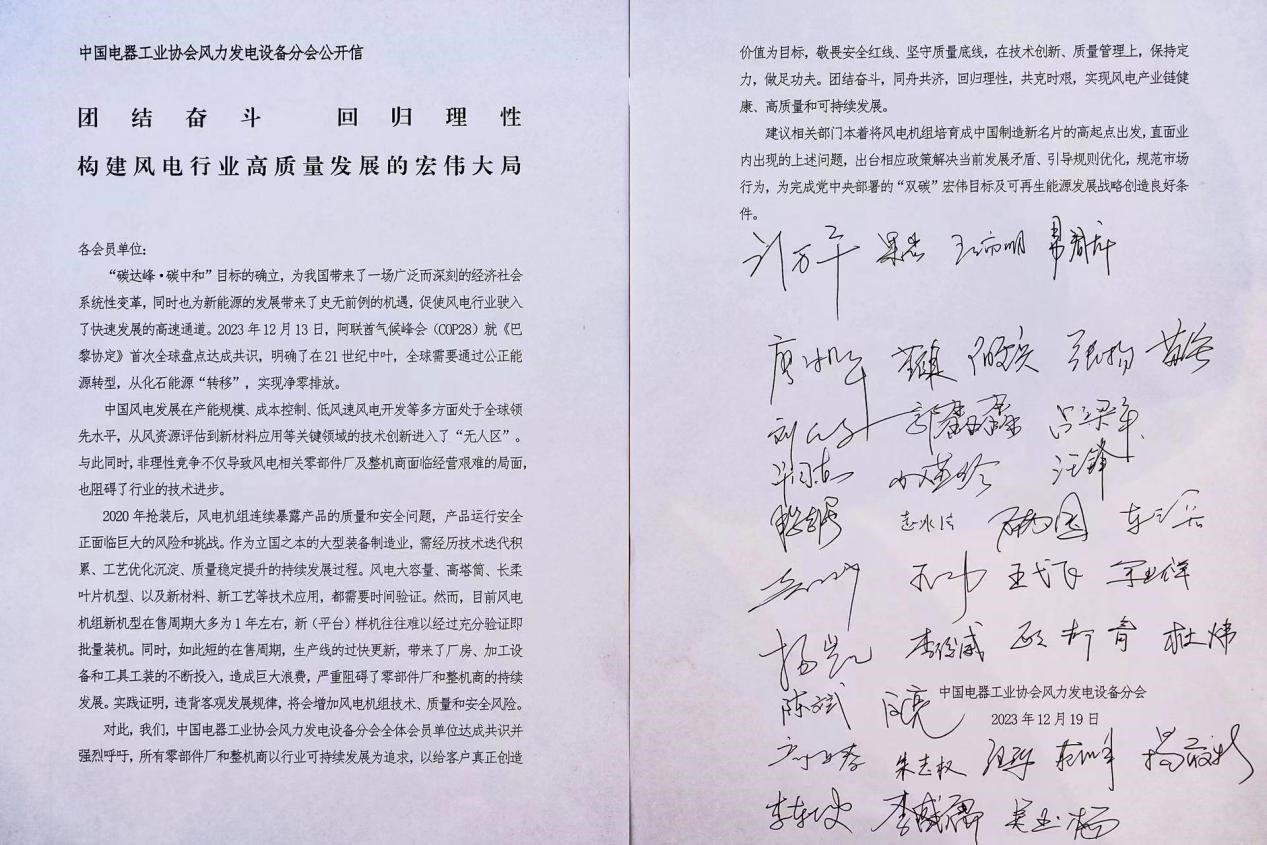 中国电器工业协会风力发电设备分会公开信
团结奋斗 回归理性
构建风电行业高质量发展的宏伟大局
各会员单位:
“碳达峰·碳中和”目标的确立，为我国带来了一场广泛而深刻的经济社会
系统性变革，同时也为新能源的发展带来了史无前例的机遇，促使风电行业驶入
了快速发展的高速通道。2023年12月13日，阿联首气候峰会（COP28）就《巴
黎协定》首次全球盘点达成共识，明确了在21世纪中叶，全球需要通过公正能
源转型，从化石能源“转移”，实现净零排放。
中国风电发展在产能规模、成本控制、低风速风电开发等多方面处于全球领
先水平，从风资源评估到新材料应用等关键领域的技术创新进入了“无人区”。
与此同时，非理性竞争不仅导致风电相关零部件厂及整机商面临经营艰难的局面，
也阻碍了行业的技术进步。
2020年抢装后，风电机组连续暴露产品的质量和安全问题，产品运行安全
正面临巨大的风险和挑战。作为立国之本的大型装备制造业，需经历技术迭代积
累、工艺优化沉淀、质量稳定提升的持续发展过程。风电大容量、高塔筒、长柔
叶片机型、以及新材料、新工艺等技术应用，都需要时间验证。然而，目前风电
机组新机型在售周期大多为1年左右，新（平台）样机往往难以经过充分验证即
批量装机。同时，如此短的在售周期，生产线的过快更新，带来了厂房、加工设
备和工具工装的不断投入，造成巨大浪费，严重阻碍了零部件厂和整机商的持续
发展。实践证明，违背客观发展规律，将会增加风电机组技术、质量和安全风险。
对此，我们，中国电器工业协会风力发电设备分会全体会员单位达成共识并
强烈呼吁，所有零部件厂和整机商以行业可持续发展为追求，以给客户真正创造
价值为目标，敬畏安全红线、坚守质量底线，在技术创新、质量管理上，保持定
力，做足功夫。团结奋斗，同舟共济，回归理性，共克时艰，实现风电产业链健
康、高质量和可持续发展。
建议相关部门本着将风电机组培育成中国制造新名片的高起点出发，直面业
内出现的上述问题，出台相应政策解决当前发展矛盾、引导规则优化，规范市场
行为，为完成党中央部署的“双碳”宏伟目标及可再生能源发展战略创造良好条
件。
张扬
汪锋
杨岚
李俊威 杜炜
陈斌
中国电器工业协会风力发电设备分会
2023年12月19日
朱志权